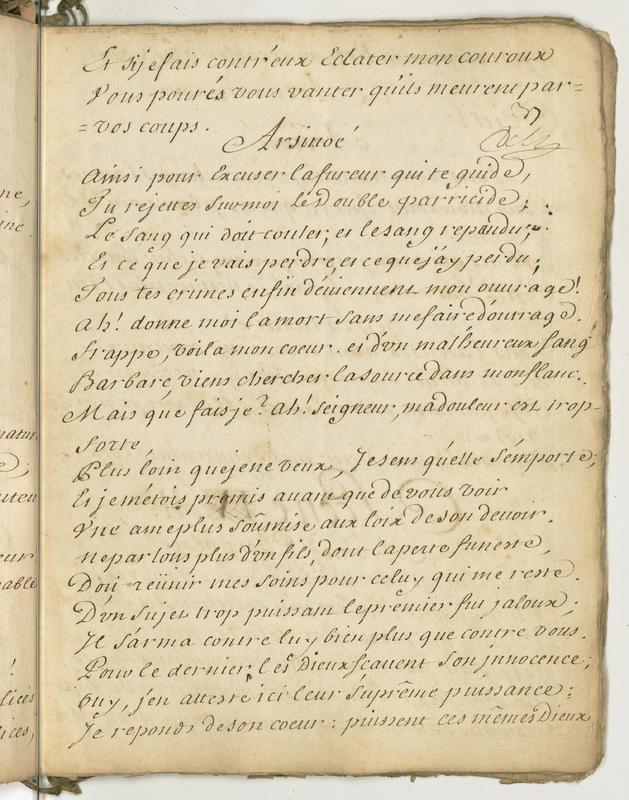 Et si je fais contr'eux Eclater mon couroux
Vous pourés vous vanter qu'ils meurent par=
=vos coups.
Arsinoé
Ainsi pour Excuser la fureur qui te guide,
Tu rejettes sur moi le Double parricide;
Le sang qui doit couler, et le sang repandu,
Et ce que je vais perdre, et ce que j'ay perdu;
Tous tes crimes enfin deviennent mon ouvrage!
Ah! donne moi la mort sans me faire d'outrage.
frappe, voila mon coeur. et d'un malheureux sang
Barbare viens chercher la source dans mon flanc.
Mais que fais je? ah! seigneur, ma douleur est trop-
forte
Plus loin que je ne veux, Je sens qu'elle s'emporte;
Et je m'étois promis avant que de vous voir
Vne ame plus soûmise aux loix de son devoir.
ne parlons plus d'vn fils, dont la perte funeste,
Doit reünir mes soins pour celuy qui me reste.
D'vn sujet trop puissant le premier fut jaloux;
Il s'arma contre luy bien plus que contre vous.
Pour le dernier, les Dieux scavent son innocence;
Ouy, j'en atteste ici leur suprême puissance:
Je reponds de son coeur: puissent ces mêmes Dieux